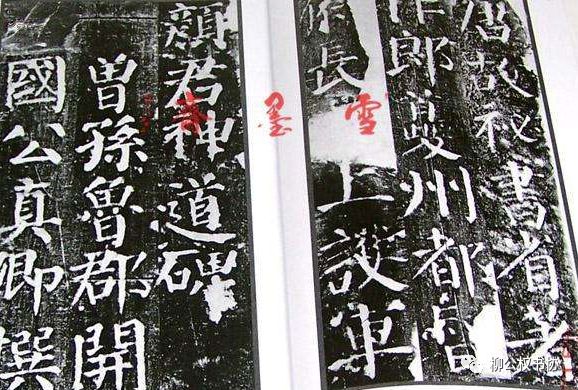 唐故秘書省著
作郎夔州都督
府長
上護軍
顏君神道碑
曾孫魯郡開
國公真卿撰
雪墨
柳公权书协